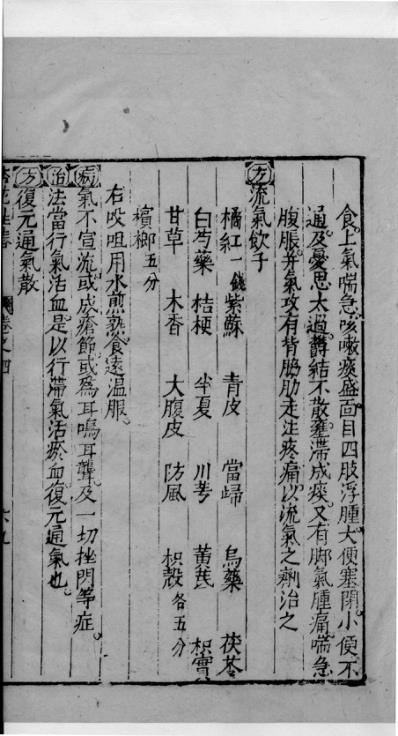 食。上氣喘急。咳嗽痰盛。面目四肢浮腫。大便塞閉。小便不
通。及憂思太過。欝結不散。壅滯成痰。又有脚氣腫痛。喘急
腹脹。并氣攻有背脇肋走注疼痛。以流氣之劑治之
方 流氣飲子
橘紅一錢 紫蘇 青皮 當歸 烏藥 茯苓
白芍藥 桔梗 半夏 川芎 黃芪 枳實
甘草 木香 大腹皮 防風 枳殼各五分
檳榔五分
右㕮咀用水煎熟。食遠溫服。
病 氣不宣流。或成瘡癤。或爲耳鳴耳聾。及一切挫閃等症。
治 法當行氣活血。是以行滯氣活瘀血。復元通氣也。
方 復元通氣散
卷之四